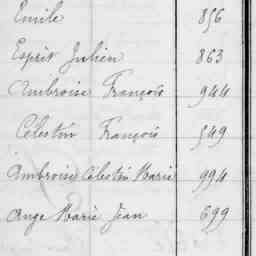 Emile 856
Esprit Julien 863
Ambroise François 944
Célestin François 549
Ambroise Célestin Marie 994
Ange Marie Jean 699